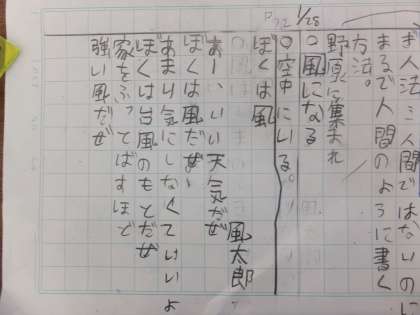 ぎ人法…人間ではないのに
まるで人間のように書く
方法。
野原に集まれ
1/28
○風になる
P72
○空中にいる。
ぼくは風
風太郎
あーいい天気だぜ
ぼくは風だぜ
あまり気にしなくていいよ
ぼくは台風のもとだぜ
家をふってばすほど
強い風だぜ